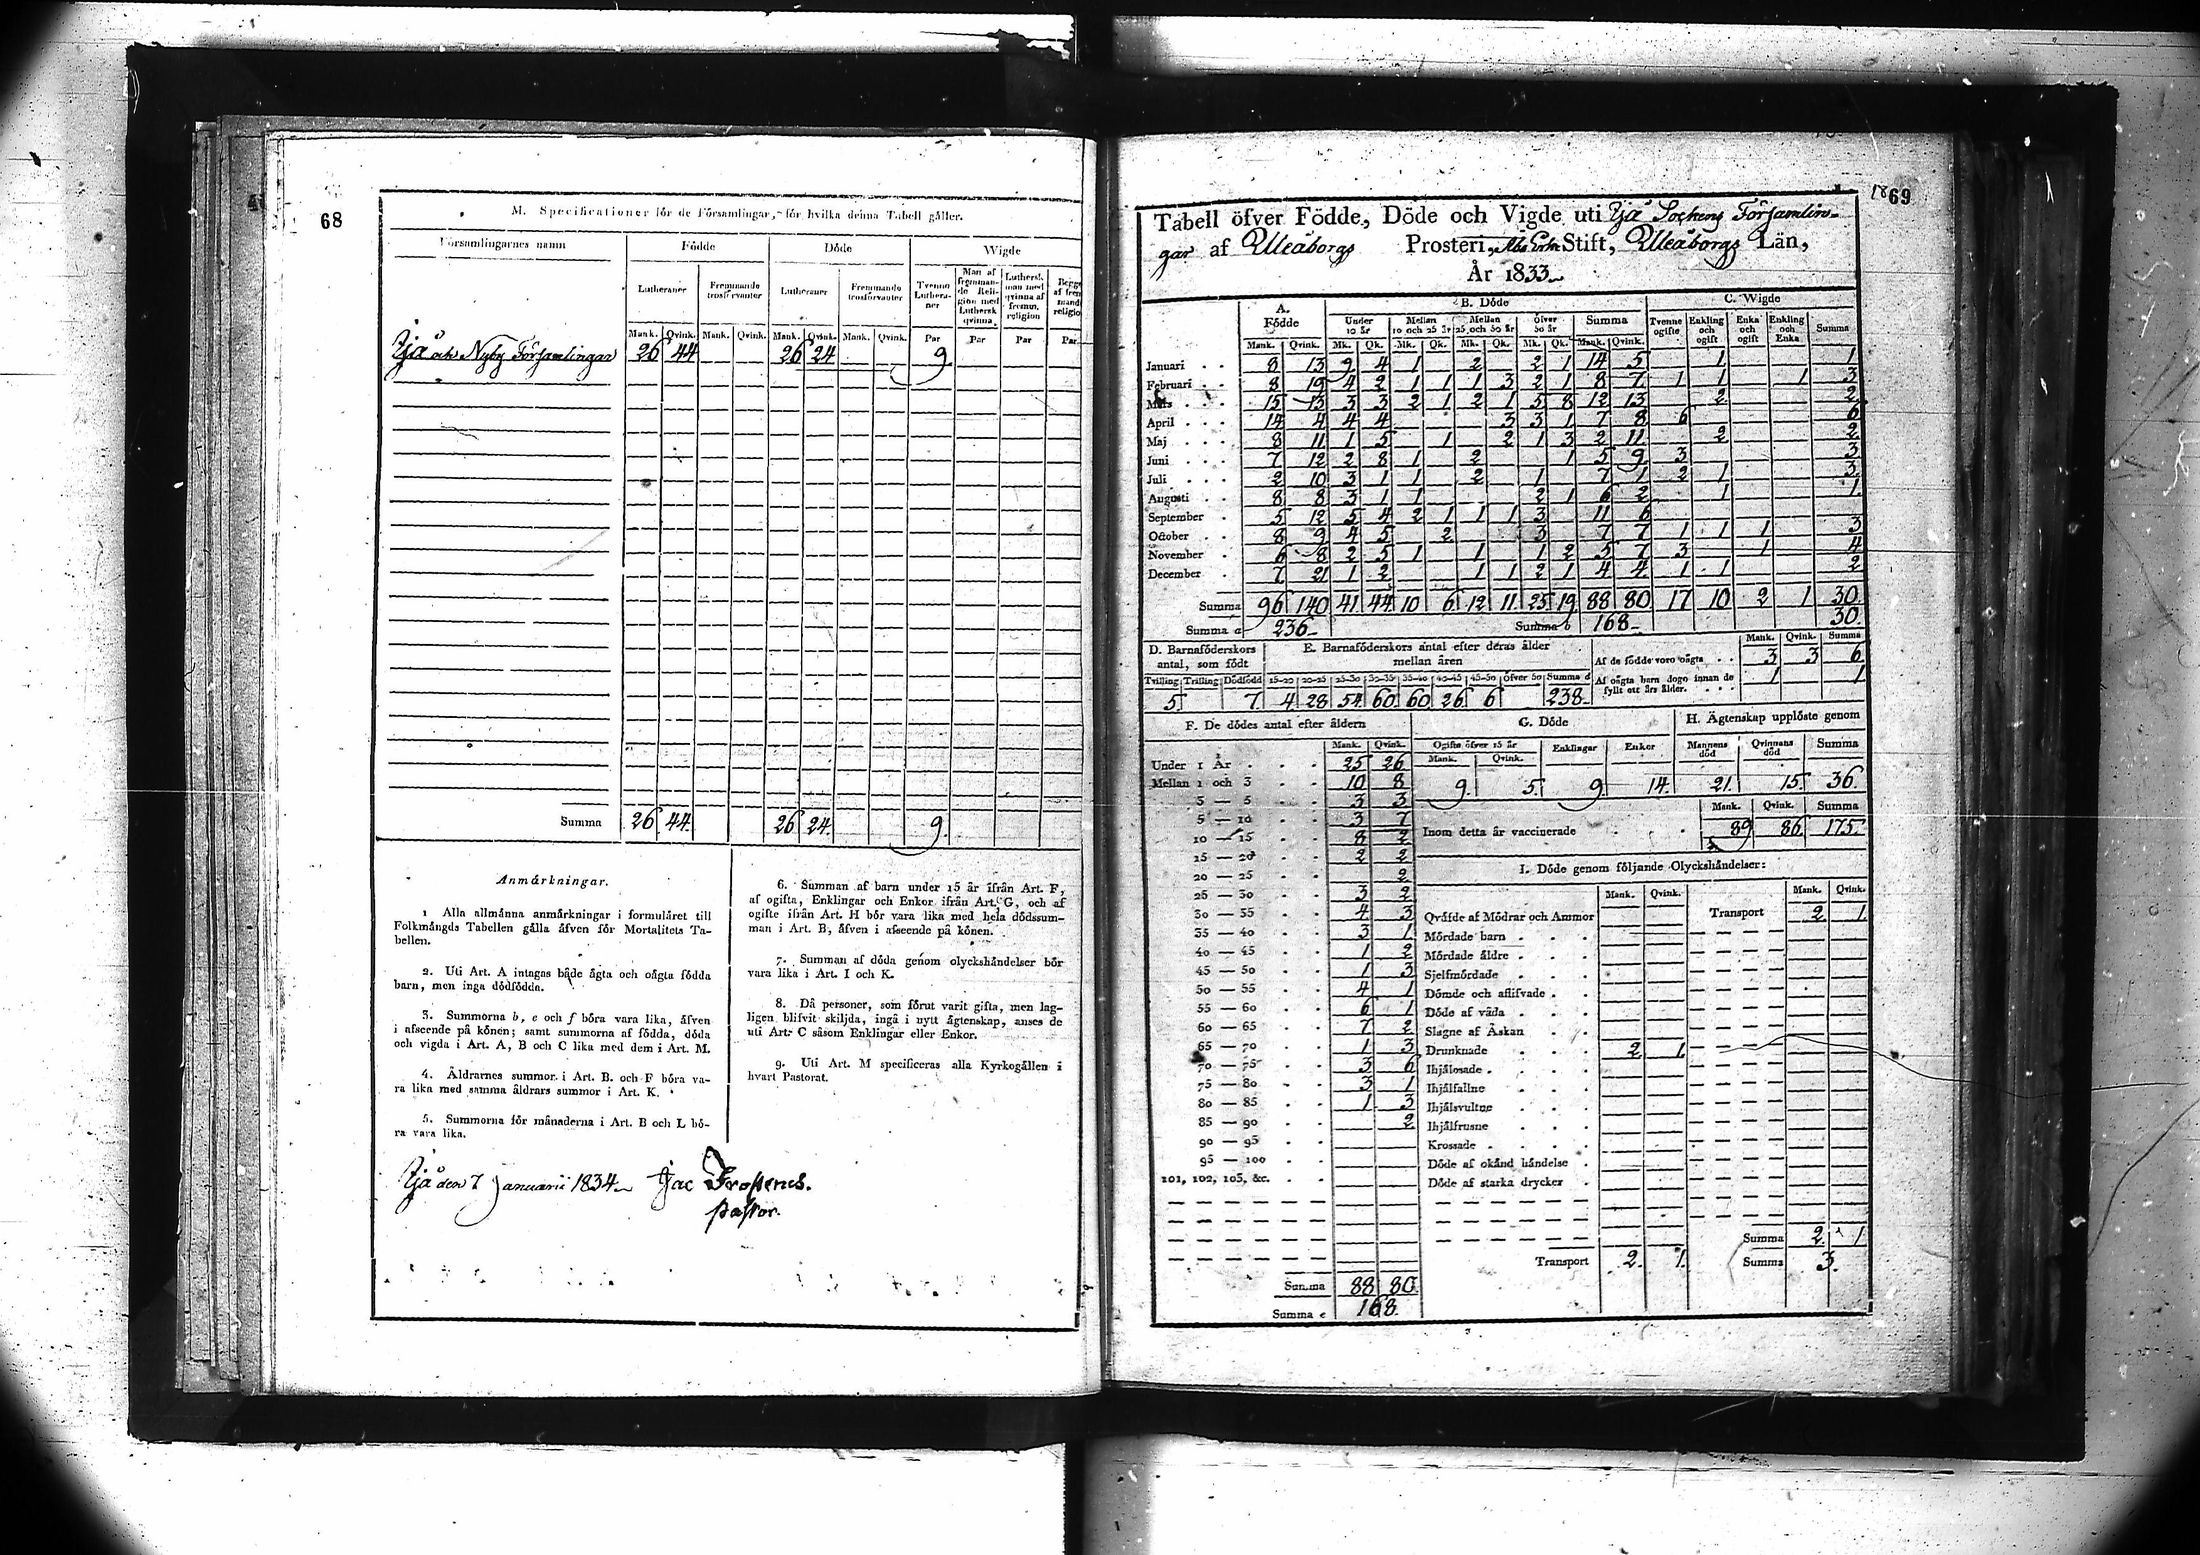 68
M. Specificationer för de Församlingar, för hvilka denna Tabell gäller.
Församlingarnes namn Födde Döde Wigde
Lutheraner Fremmande trosförvanter Lutheraner Fremmande trosförvanter Tvenne Lutheraner Man af fremmande Religion med Luthersk qvinna. Luthersk man med qvinna af fremm. religion
Mank. Qvink. Mank. Qvink. Mank. Qvink. Mank. Qvink. Par Par Par Par
Ijå och Nyby Församlingar 26 44 26 24 9
Summa 26 44 26 24 9
Anmärkningar.
1 Alla allmänna anmärkningar i formuläret till
Folkmängds Tabellen gälla äfven för Mortalitets Ta-
bellen.
2. Uti Art. A intagas både ägta och oägta födda
barn, men inga dödfödda.
3. Summorna b, e och f böra vara lika, äfven
i afseende på könen; samt summorna af födda, döda
och vigda i Art. A, B och C lika med dem i Art. M.
4. Åldrarnes summor i Art. B. och F böra va-
ra lika med samma åldrars summor i Art. K.
5. Summorna för månaderna i Art. B och L bö-
ra vara lika.
6. Summan af barn under 15 år ifrån Art. F,
af ogifta, Enklingar och Enkor ifrån Art. G, och af
ogifte ifrån Art. H bör vara lika med hela dödssum-
man i Art. B, äfven i afseende på könen.
7. Summan af döda genom olyckshändelser bör
vara lika i Art. I och K.
8. Då personer, som förut varit gifta, men lag-
ligen blifvit skiljda, ingå i nytt ägtenskap, anses de
uti Art. C såsom Enklingar eller Enkor.
9. Uti Art. M specificeras alla Kyrkogällen i
hvart Pastorat.
Ijå den 7 Januarii 1834 Jac Frosterus.
Pastor.
69
Tabell öfver Födde, Döde och Vigde uti Ijå Sockens Församlin-
gar af Uleåborgs Prosteri, Stift, Uleåborgs Län,
År 1833
A. Födde B. Döde C. Wigde
Under 10 år Mellan 10 och 25 år Mellan 25 och 50 år öfver 50 år Summa Tvenne ogifte Enkling och ogift Enka och ogift Enkling och Enka Summa
Mank. Qvink. Mk. Qk. Mk. Qk. Mk. Qk. Mk. Qk. Mank. Qvink.
Januari 8 13 9 4 1 2 2 1 14 5 1 1
Februari 8 19 4 2 1 1 1 3 2 1 8 7 1 1 1 3
Mars 15 13 3 3 2 1 2 1 5 8 12 13 2 2
April 14 4 4 4 3 3 1 7 8 6 6
Maj 8 11 1 5 1 2 1 3 2 11 2 2
Juni 7 12 2 8 1 2 1 5 9 3 3
Juli 2 10 3 1 1 2 1 7 1 2 1 3
Augusti 8 8 3 1 1 2 1 6 2 1 1
September 5 12 5 4 2 1 1 1 3 11 6
October 8 9 4 5 2 3 7 7 1 1 1 3
November 6 8 2 5 1 1 1 2 5 7 3 1 4
December 7 21 1 2 1 1 2 1 4 4 1 1 2
Summa 96 140 41 44 10 6 12 11 25 19 88 80 17 10 2 1 30
Summa a 236 Summa b 168 30
D. Barnaföderskors antal, som födt
E. Barnaföderskors antal efter deras ålder mellan åren
Mank. Qvink. Summa
Tvilling Trilling Dödfödd 15-20 20-25 25-30 30-35 35-40 40-45 45-50 öfver 50 Summa d
5 7 4 28 54 60 60 26 6 238
Af de födde voro oägta 3 3 6
Af oägta barn dogo innan de fyllt ett års ålder. 1 1
F. De dödes antal efter åldern
Mank. Qvink.
Under 1 År 25 26
Mellan 1 och 3 10 8
3 — 5 3 3
5 — 10 3 7
10 — 15 8 2
15 — 20 2 2
20 — 25 2
25 — 30 3 2
30 — 35 4 3
35 — 40 3 1
40 — 45 1 2
45 — 50 1 3
50 — 55 4 1
55 — 60 6 1
60 — 65 7 2
65 — 70 1 3
70 — 75 3 6
75 — 80 3 1
80 — 85 1 3
85 — 90 2
90 — 95
95 — 100
101, 102, 103, &c.
Summa 88 80
Summa e 168
G. Döde
Ogifte öfver 15 år Enklingar Enkor
Mank. Qvink.
9 5 9 14
H. Ägtenskap upplöste genom
Mannens död Qvinnans död Summa
21 15 36
Mank. Qvink. Summa
Inom detta år vaccinerade 89 86 175
I. Döde genom följande Olyckshändelser:
Mank. Qvink. Mank. Qvink.
Qväfde af Mödrar och Ammor Transport 2 1
Mördade barn
Mördade äldre
Sjelfmördade
Dömde och aflifvade
Döde af våda
Slagne af Åskan
Drunknade 2 1
Ihjälosade
Ihjälfallne
Ihjälsvultne
Ihjälfrusne
Krossade
Döde af okänd händelse
Döde af starka drycker
Summa 2 1
Transport 2 1 Summa 3